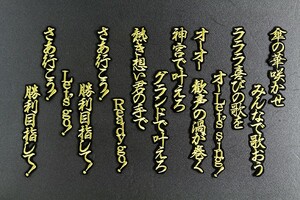 傘の華咲かせ
みんなで歌おう
ラララ喜びの歌を
オー Let's sing!
オーオー 歓声の渦が巻く
神宮で叶えろ
グランドで叶えろ
熱き想い君の手で
Ready go!
さあ行こう!
勝利目指して!
Let's go!
さあ行こう!
勝利目指して!